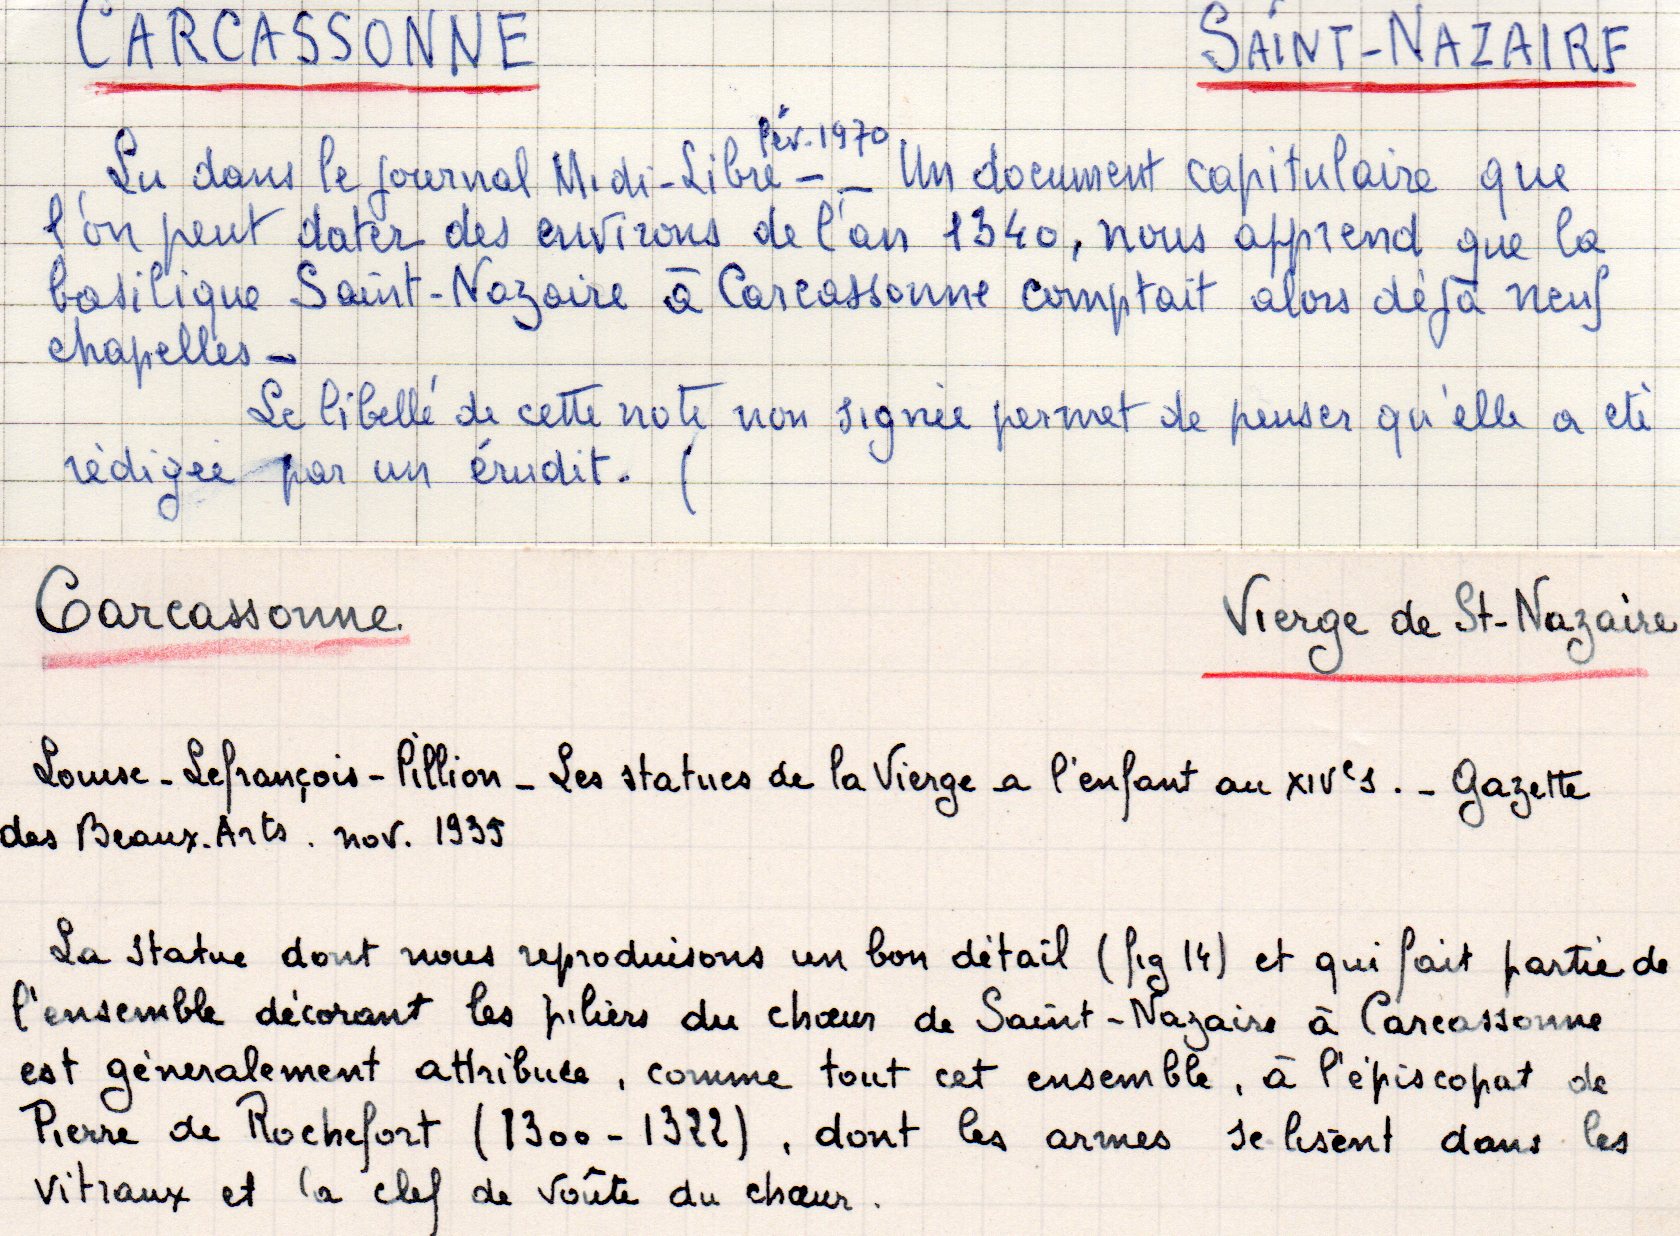 CARCASSONNE SAINT-NAZAIRE
fév. 1970
Lu dans le journal Midi-Libre - - Un document capitulaire que
l'on peut dater des environs de l'an 1340, nous apprend que la
basilique Saint-Nazaire à Carcassonne comptait alors déjà neuf
chapelles -
Le libellé de cette note non signée permet de penser qu'elle a été
rédigée par un érudit. (
Carcassonne. Vierge de St-Nazaire
Louise - Lefrançois - Pillion - Les statues de la Vierge a l'enfant au XIVe s. - Gazette
des Beaux-Arts. nov. 1935
La statue dont nous reproduisons un bon détail (fig 14) et qui fait partie de
l'ensemble décorant les piliers du chœur de Saint-Nazaire à Carcassonne
est généralement attribuée, comme tout cet ensemble, à l'épiscopat de
Pierre de Rochefort (1300 - 1322), dont les armes se lisent dans les
vitraux et la clef de voûte du chœur.